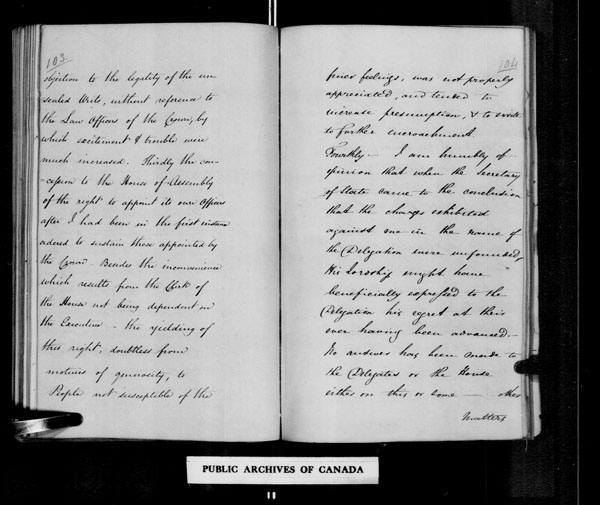 103.
objection to the legality of the un-
sealed Writs, without reference to
the Law Officers of the Crown; by
which excitement & trouble were
much increased. Thirdly the con-
-cession to the House of Assembly
of the right to appoint its own Officers
after I had been in the first instance
ordered to sustain those appointed by
the Crown. Besides the inconvenience
which results from the Clerk of
the House not being dependent on
the Executive - the yielding of
this right, doubtless from
motives of generosity, to
People not susceptible of the
104
finer feelings, was not properly
appreciated, and tended to
increase presumption, & to excite
to further encroachment
Fourthly - I am humbly of
opinion that when the Secretary
of State came to the conclusion
that the charges exhibited
against me in the name of
the Delegation were unfounded,
His Lordship might have
beneficially expressed to the
Delegation his regret at their
ever having been advanced.
No answer has been made to
the Delegates or the House
either on this or some - other
Matters
PUBLIC ARCHIVES OF CANADA